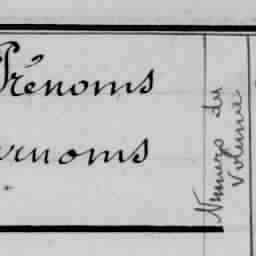 Prénoms
urnoms
Numéro du
Volume